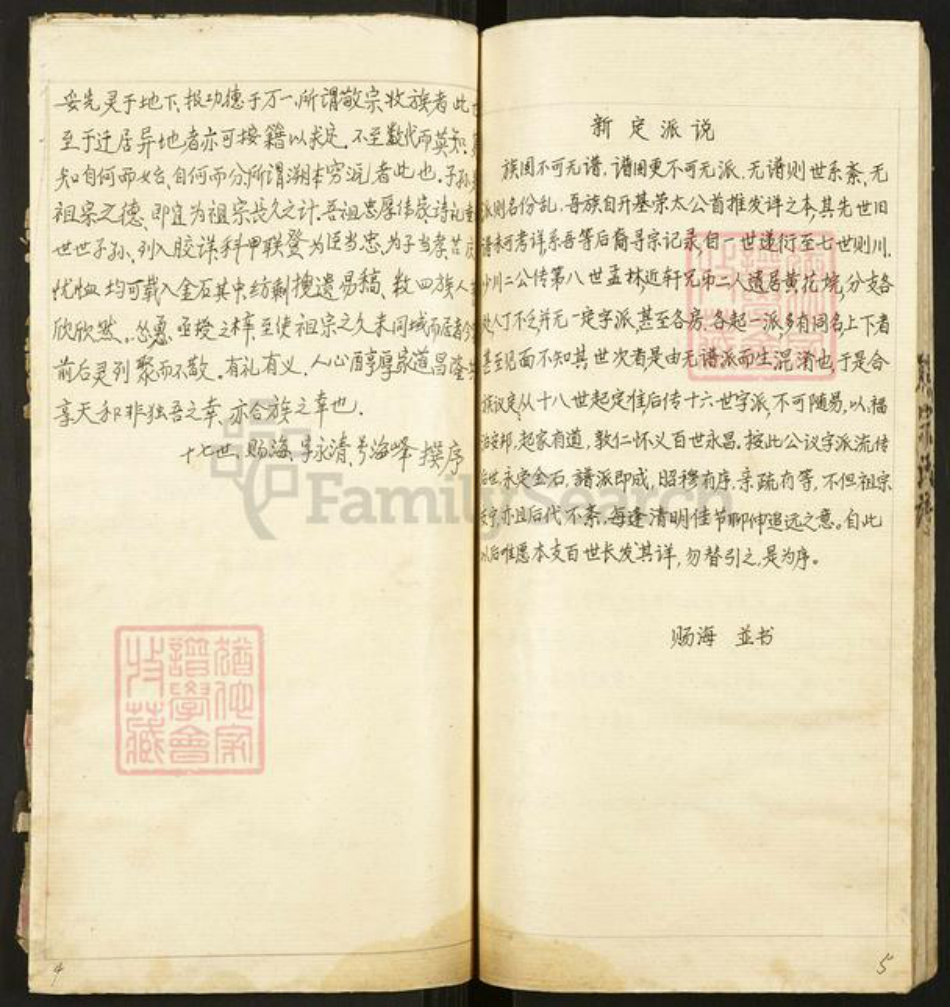 妥先灵于地下、报功德于万一、所谓敬宗收族者此也
至于迁居异地者亦可按籍以求定、不至数代而莫知、
知自何而始、自何而分、所谓溯本穷源者此也、子孙
祖宗之德、即宜为祖宗长久之计、吾祖忠厚传家诗礼
世世子孙、列入胶详、科甲联登为臣当忠、为子当孝苦
忧恤 均可载入金石其中、纺剩搜遗易稿、数四族人
欣欣然、怂恿 亟授之梓、至使祖宗之久未同域而居者
前后灵列聚而不散。有礼有义、人心醇厚家道昌隆
享天和非独吾之幸、亦合族之幸也.
十七世、赐海、字永清、号海峰 撰序
4
新定派说
族固不可无谱，谱固更不可无派、无谱则世系紊、无
派则名份乱，吾族自开基荣太公首推发详之本，其先世旧
谱未可考详，系吾等后裔寻宗记录自一世递衍至七世则川、
川二公传第八世孟林、近轩兄弟二人遗居黄花垸，分支各
处人丁不乏并无一定字派、甚至各房、各起一派，多有同名，上下者
甚至见面不知其世次者是由无谱派而生混淆也，于是合
族议定，从十八世起定准后传十六世字派，不可随易，以，福
治安邦，起家有道，敦仁怀义百世永昌。按此公议字派流传
后世、永定金石，譜派即成，昭穆有序、亲疏有等，不但祖宗
安宁，亦且后代不紊，每逢清明佳节聊伸追远之意。自此
以后唯愿本支百世长发其详，勿替引之，是为序。
赐海 並书
5
譜學會
收藏
FamilySearch